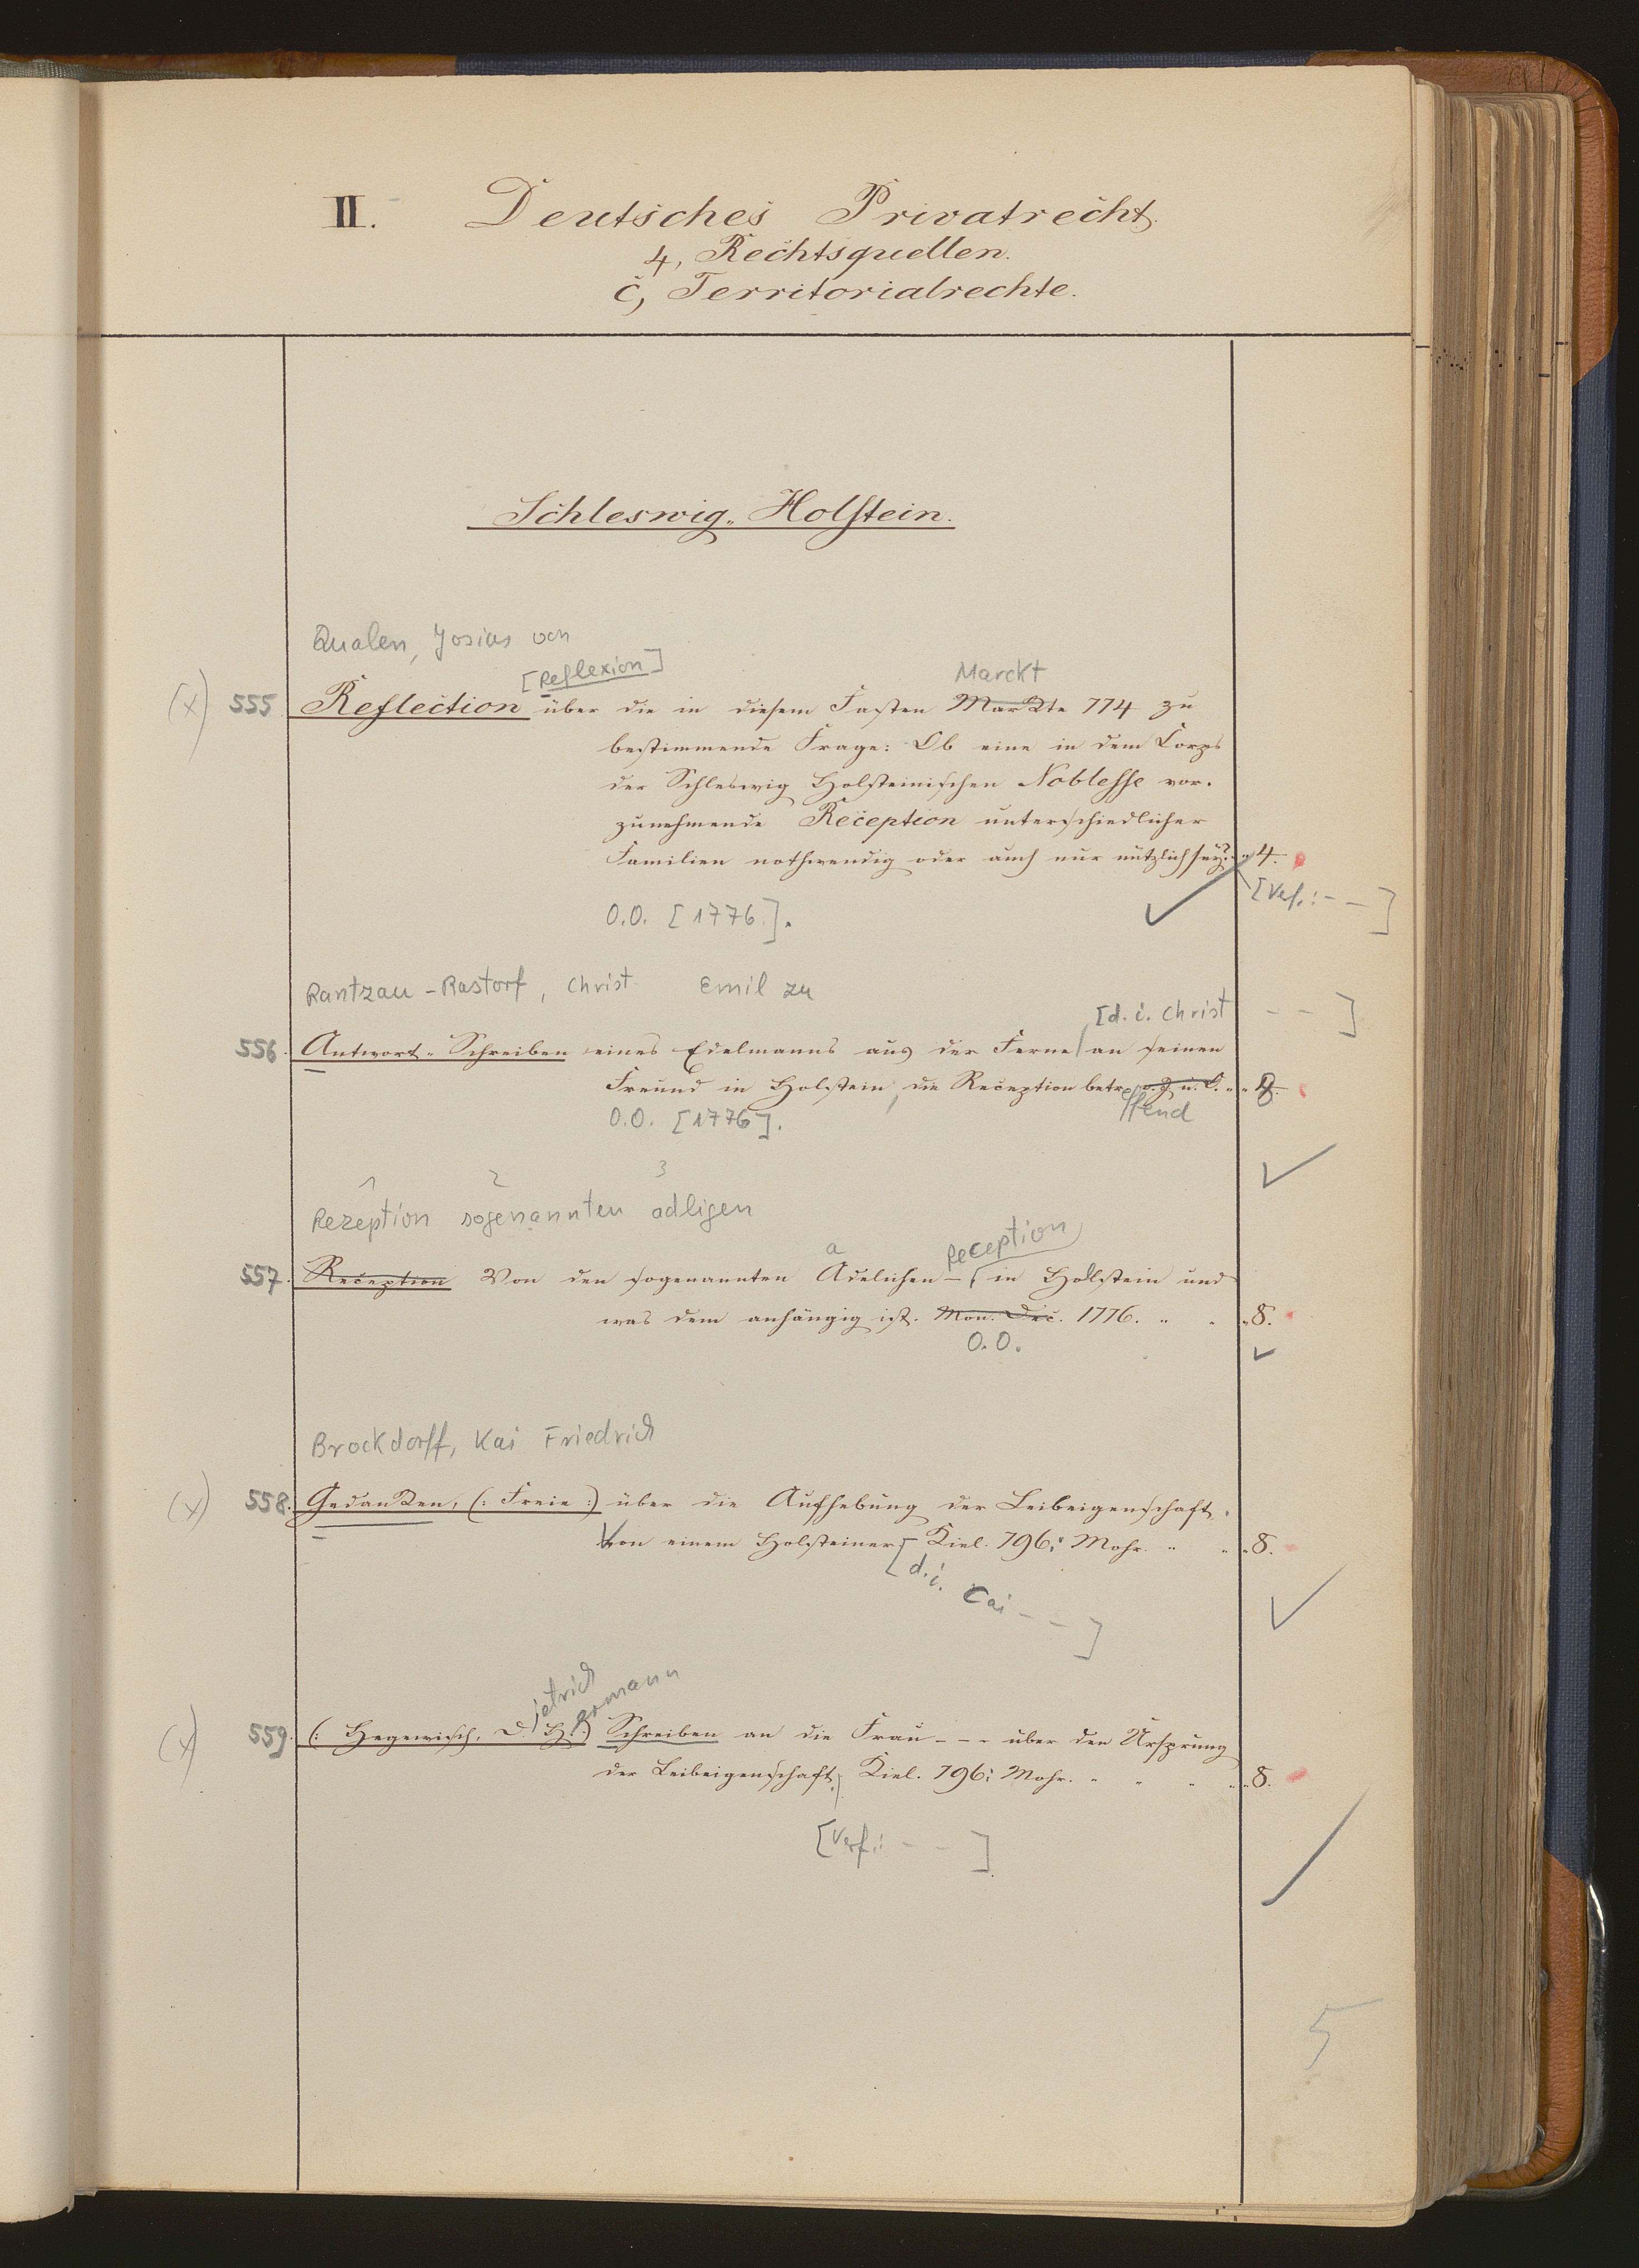 II. Deutsches Privatrecht.
4, Rechtsquellen.
c, Territorialrechte.
Schleswig-Holstein.
Qualen, Josias von
[Reflexion] Marckt
(x) 555 Reflection über die in diesem Fasten Markte 774 zu
bestimmende Frage: Ob eine in dem Corps
der Schleswig Holsteinischen Noblesse vor-
zunehmende Reception unterschiedlicher
Familien nothwendig oder auch nur nützlich sey? " 4.
[Verf.: - - ]
O.O. [1776].
Rantzau-Rastorf, Christ Emil zu
[d. i. Christ - - ]
556. Antwort-Schreiben eines Edelmanns aus der Ferne an seinen
Freund in Holstein, die Reception betr. o. J. u. O. " " 8.
effend
O.O. [1776].
1 2 3
Rezeption sogenannten adligen
a Reception
557. Reception Von den sogenannten Adelichen - in Hollstein und
was dem anhängig ist. Mon. Dec. 1776. " " " 8.
O.O.
Brockdorff, Kai Friedrich
(x) 558. Gedanken, (: Freie :) über die Aufhebung der Leibeigenschaft.
Von einem Holsteiner. Kiel. 796: Mohr. " " " 8.
[d. i. Cai - - ]
ietrich ermann
(x) 559. (: Hegewisch, D. H. :) Schreiben an die Frau - - - über den Ursprung
der Leibeigenschaft. Kiel. 796: Mohr. " " " " " 8.
[Verf.: - - ]
5